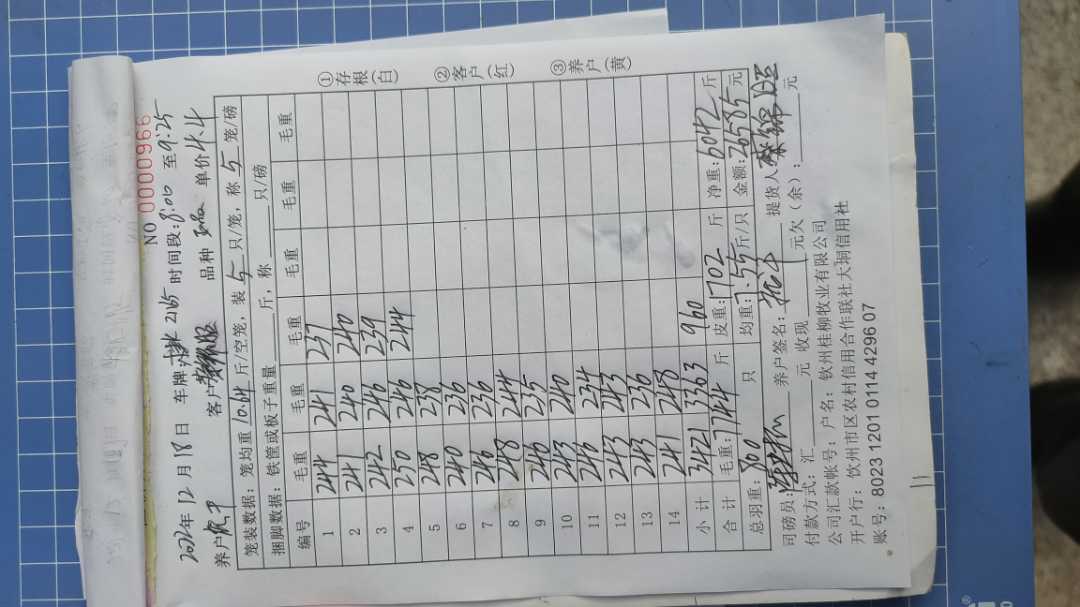 NO 0000966
年12月18日 车牌 2165 时间段:8:00 至9:25
养户 客户 品种 单价4.4
笼装数据:笼均重10.64斤/空笼,装5只/笼,称5笼/磅
捆脚数据:铁筐或板子重量 斤,称 只/磅
编号 毛重 毛重 毛重 毛重 毛重 毛重
1 244 241 237
2 241 240 240
3 242 246 239
4 250 246 244
5 248 238
6 240 236
7 246 236
8 248 244
9 246 235
10 243 240
11 246 234
12 243 243
13 243 236
14 241 248
小计 3421 3363 960
合计 毛重:7744斤 皮重:1702斤 净重:6042斤
总羽重:800只 均重:7.55斤/只 金额:26585元
司磅员: 养户签名: 提货人
付款方式:汇 元 收现 元欠(余): 元
公司汇款帐号:户名:钦州桂柳牧业有限公司
开户行:钦州市区农村信用合作联社大垌信用社
账号:8023 1201 0114 4296 07
①存根(白)
②客户(红)
③养户(黄)